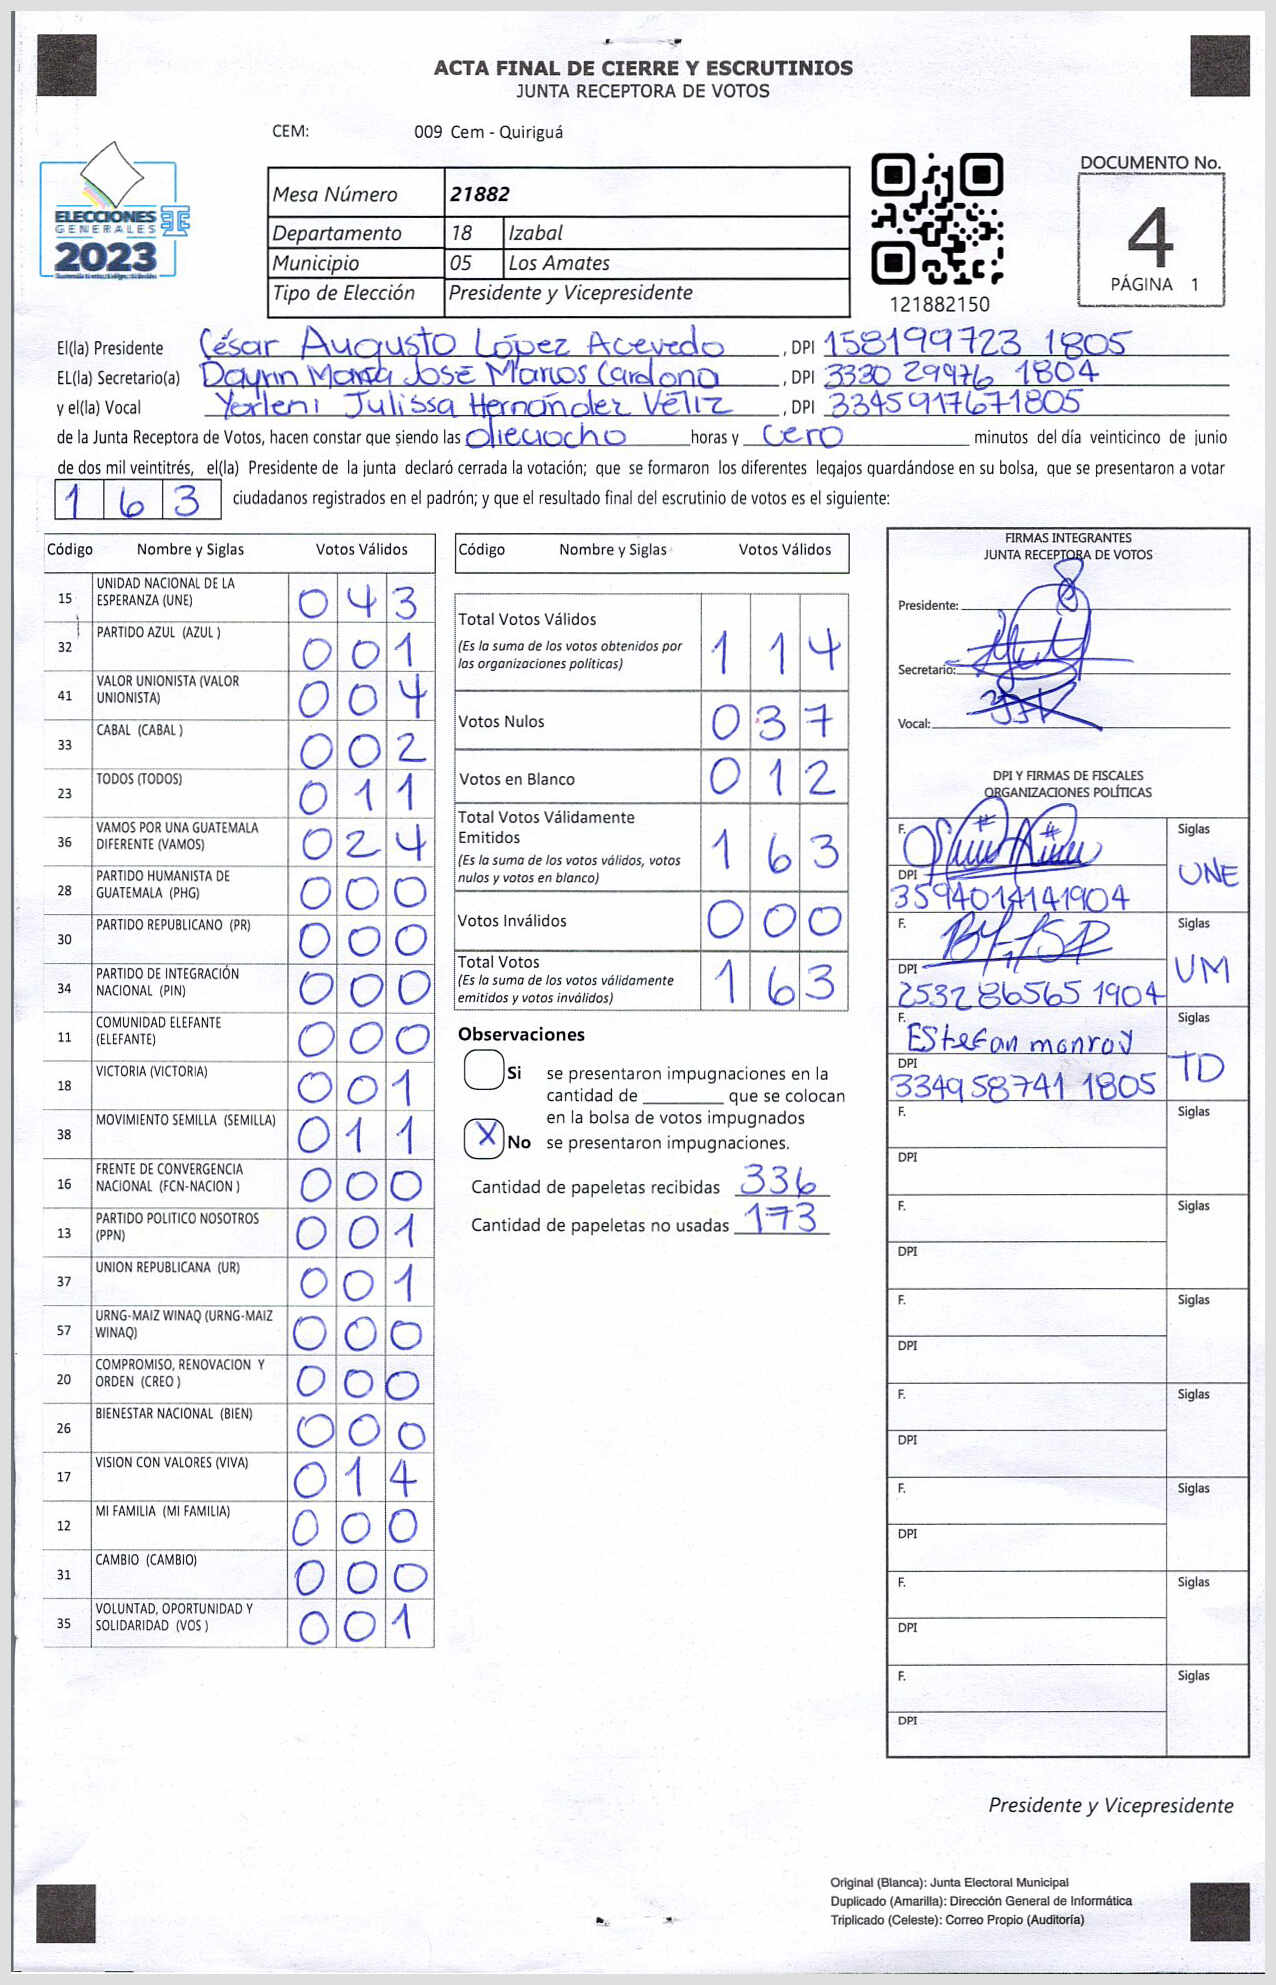 ACTA FINAL DE CIERRE Y ESCRUTINIOS
JUNTA RECEPTORA DE VOTOS
CEM: 009 Cem - Quiriguá
ELECCIONES
GENERALES
2023
Mesa Número 21882
Departamento 18 Izabal
Municipio 05 Los Amates
Tipo de Elección Presidente y Vicepresidente
121882150
DOCUMENTO No.
4
PÁGINA 1
El(la) Presidente César Augusto López Acevedo , DPI 158199723 1805
EL(la) Secretario(a) Dayrin María José Marcos Cardona , DPI 3330 29976 1804
y el(la) Vocal Yorleni Julissa Hernández Véliz , DPI 3345917671805
de la Junta Receptora de Votos, hacen constar que siendo las dieciocho horas y cero minutos del día veinticinco de junio
de dos mil veintitrés, el(la) Presidente de la junta declaró cerrada la votación; que se formaron los diferentes legajos guardándose en su bolsa, que se presentaron a votar
163 ciudadanos registrados en el padrón; y que el resultado final del escrutinio de votos es el siguiente:
Código Nombre y Siglas Votos Válidos
15 UNIDAD NACIONAL DE LA ESPERANZA (UNE) 043
32 PARTIDO AZUL (AZUL ) 001
41 VALOR UNIONISTA (VALOR UNIONISTA) 004
33 CABAL (CABAL ) 002
23 TODOS (TODOS) 011
36 VAMOS POR UNA GUATEMALA DIFERENTE (VAMOS) 024
28 PARTIDO HUMANISTA DE GUATEMALA (PHG) 000
30 PARTIDO REPUBLICANO (PR) 000
34 PARTIDO DE INTEGRACIÓN NACIONAL (PIN) 000
11 COMUNIDAD ELEFANTE (ELEFANTE) 000
18 VICTORIA (VICTORIA) 001
38 MOVIMIENTO SEMILLA (SEMILLA) 011
16 FRENTE DE CONVERGENCIA NACIONAL (FCN-NACION ) 000
13 PARTIDO POLITICO NOSOTROS (PPN) 001
37 UNION REPUBLICANA (UR) 001
57 URNG-MAIZ WINAQ (URNG-MAIZ WINAQ) 000
20 COMPROMISO, RENOVACION Y ORDEN (CREO ) 000
26 BIENESTAR NACIONAL (BIEN) 000
17 VISION CON VALORES (VIVA) 014
12 MI FAMILIA (MI FAMILIA) 000
31 CAMBIO (CAMBIO) 000
35 VOLUNTAD, OPORTUNIDAD Y SOLIDARIDAD (VOS ) 001
Código Nombre y Siglas Votos Válidos
Total Votos Válidos 114
(Es la suma de los votos obtenidos por
las organizaciones políticas)
Votos Nulos 037
Votos en Blanco 012
Total Votos Válidamente
Emitidos 163
(Es la suma de los votos válidos, votos
nulos y votos en blanco)
Votos Inválidos 000
Total Votos 163
(Es la suma de los votos válidamente
emitidos y votos inválidos)
Observaciones
Si se presentaron impugnaciones en la
cantidad de ________ que se colocan
en la bolsa de votos impugnados
X No se presentaron impugnaciones.
Cantidad de papeletas recibidas 336
Cantidad de papeletas no usadas 173
FIRMAS INTEGRANTES
JUNTA RECEPTORA DE VOTOS
Presidente:
Secretario:
Vocal:
DPI Y FIRMAS DE FISCALES
ORGANIZACIONES POLÍTICAS
F. Siglas
UNE
DPI
3594014141904
F. Siglas
UM
DPI
2532 86565 1904
F. Estefan monroy Siglas
TD
DPI
3349 58741 1805
F. Siglas
DPI
F. Siglas
DPI
F. Siglas
DPI
F. Siglas
DPI
F. Siglas
DPI
F. Siglas
DPI
F. Siglas
DPI
Presidente y Vicepresidente
Original (Blanca): Junta Electoral Municipal
Duplicado (Amarilla): Dirección General de Informática
Triplicado (Celeste): Correo Propio (Auditoría)